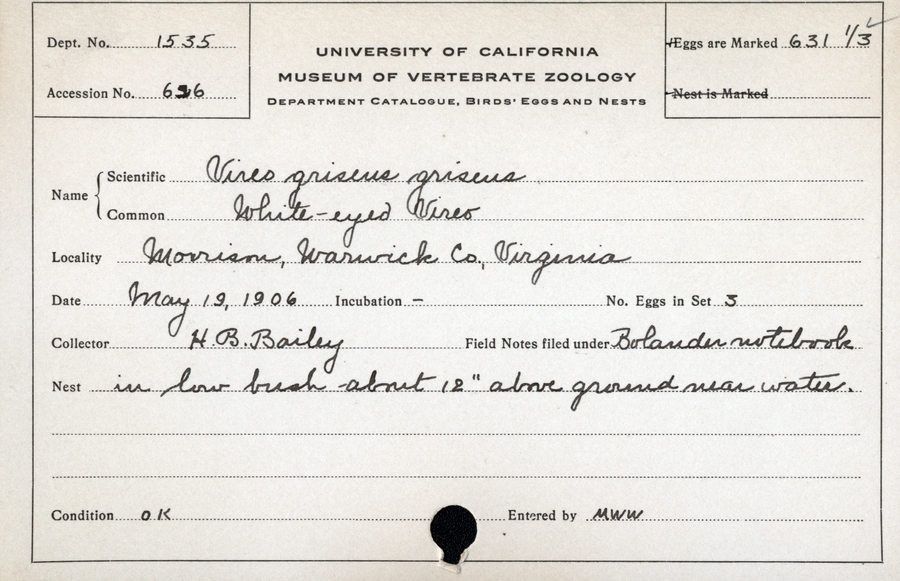 Dept. No. 1535
Accession No. 6
UNIVERSITY OF CALIFORNIA
MUSEUM OF VERTEBRATE ZOOLOGY
DEPARTMENT CATALOGUE, BIRDS' EGGS AND NESTS
Eggs are Marked 631 1/3
Nest is Marked
Name
Scientific Vireo griseus griseus
Common White-eyed Vireo
Locality Morrison, Warwick Co., Virginia
Date May 19, 1906 Incubation – No. Eggs in Set 3
Collector H. B. Bailey Field Notes filed under Bolander notebook
Nest in low bush about 18" above ground near water.
Condition OK Entered by MWW